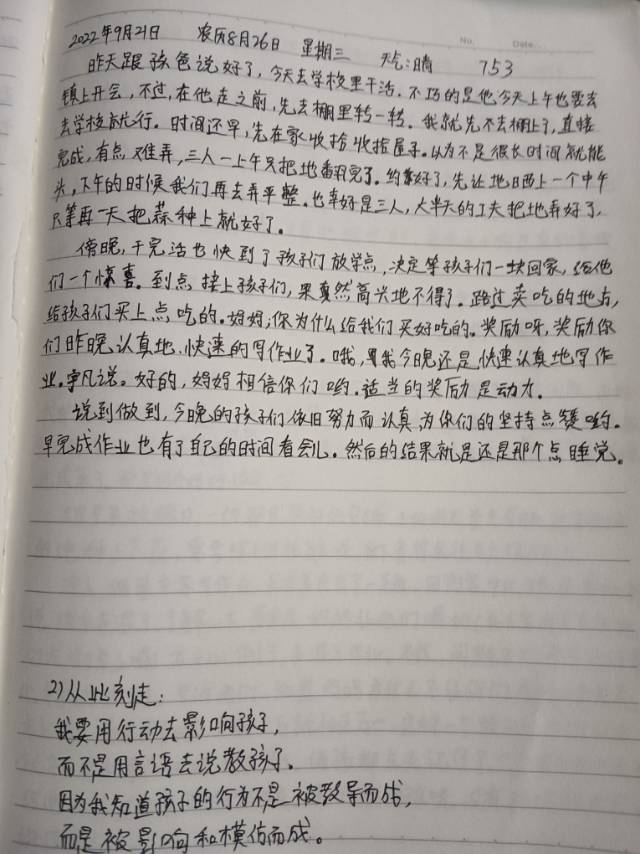 No. Date.
2022年9月21日 农历8月26日 星期三 天气:晴 753
昨天跟孩爸说好了,今天去学校里干活。不巧的是他今天上午也要去
镇上开会,不过,在他走之前,先去棚里转一转。我就先不去棚上了,直接
去学校就行。时间还早,先在家收拾收拾屋子。以为不是很长时间就能
完成,有点难弄,三人一上午只把地翻完了。约好了,先让地晒上一个中午
头,下午的时候我们再去弄平整。也幸好是三人,大半天的工夫把地弄好了,
只等再一天把蒜种上就好了。
傍晚,干完活也快到了孩子们放学点,决定等孩子们一块回家,给他
们一个惊喜。到点接上孩子们,果真然高兴地不得了。路过卖吃的地方,
给孩子们买上点吃的。妈妈,你为什么给我们买好吃的。奖励呀,奖励你
们昨晚认真地、快速的写作业了。哦,那我今晚还是快速认真地写作
业。宇凡说。好的,妈妈相信你们哟。适当的奖励是动力。
说到做到,今晚的孩子们依旧努力而认真,为你们的坚持点赞哟。
早完成作业也有了自己的时间看会儿。然后的结果就是还是那个点睡觉。
2)从此刻走:
我要用行动去影响孩子,
而不是用言语去说教孩子。
因为我知道孩子的行为不是被教导而成,
而是被影响和模仿而成。